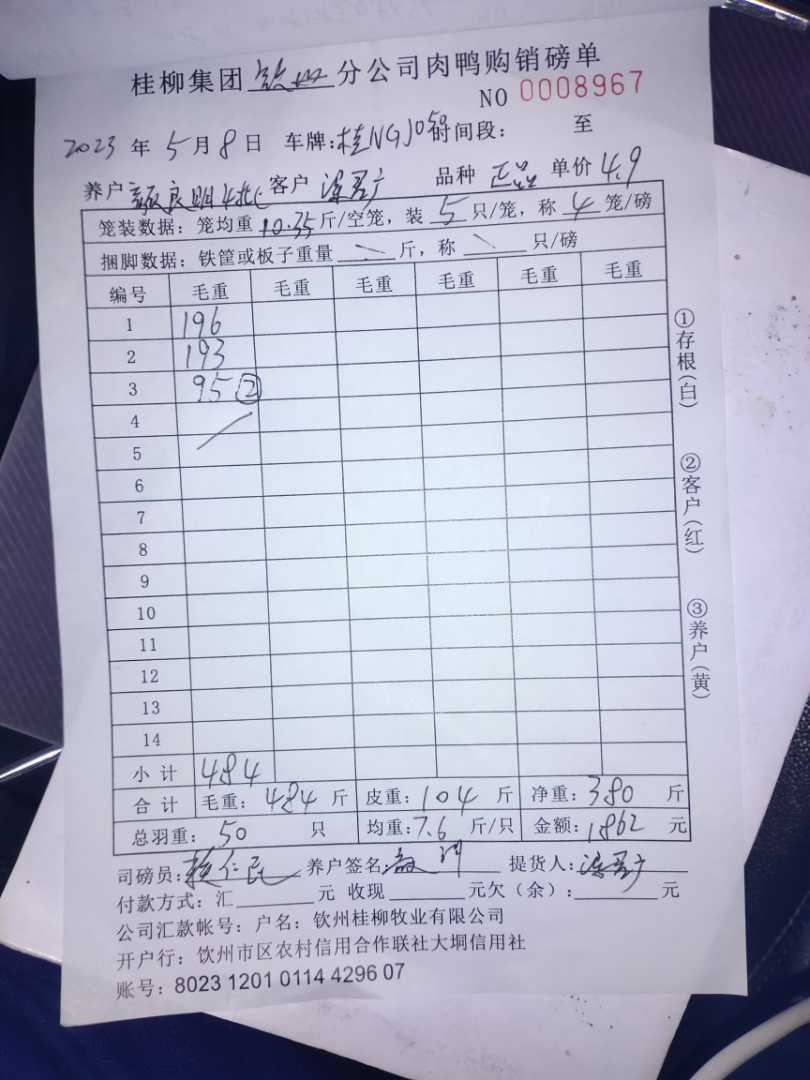 桂柳集团 钦州 分公司肉鸭购销磅单
NO 0008967
2023 年 5 月 8 日 车牌:桂NGJ050 时间段: 至
养户 良明4批 客户 品种 正品 单价 4.9
笼装数据:笼均重 10.35 斤/空笼,装 5 只/笼,称 4 笼/磅
捆脚数据:铁筐或板子重量 \ 斤,称 \ 只/磅
编号 毛重 毛重 毛重 毛重 毛重 毛重
1 196
2 193
3 95 ②
4
5
6
7
8
9
10
11
12
13
14
小计 484
合计 毛重: 484 斤 皮重: 104 斤 净重: 380 斤
总羽重: 50 只 均重: 7.6 斤/只 金额: 1862 元
司磅员: 仁民 养户签名 提货人:
付款方式:汇 元 收现 元欠(余): 元
公司汇款帐号:户名:钦州桂柳牧业有限公司
开户行:钦州市区农村信用合作联社大垌信用社
账号:8023 1201 0114 4296 07
①存根(白)
②客户(红)
③养户(黄)